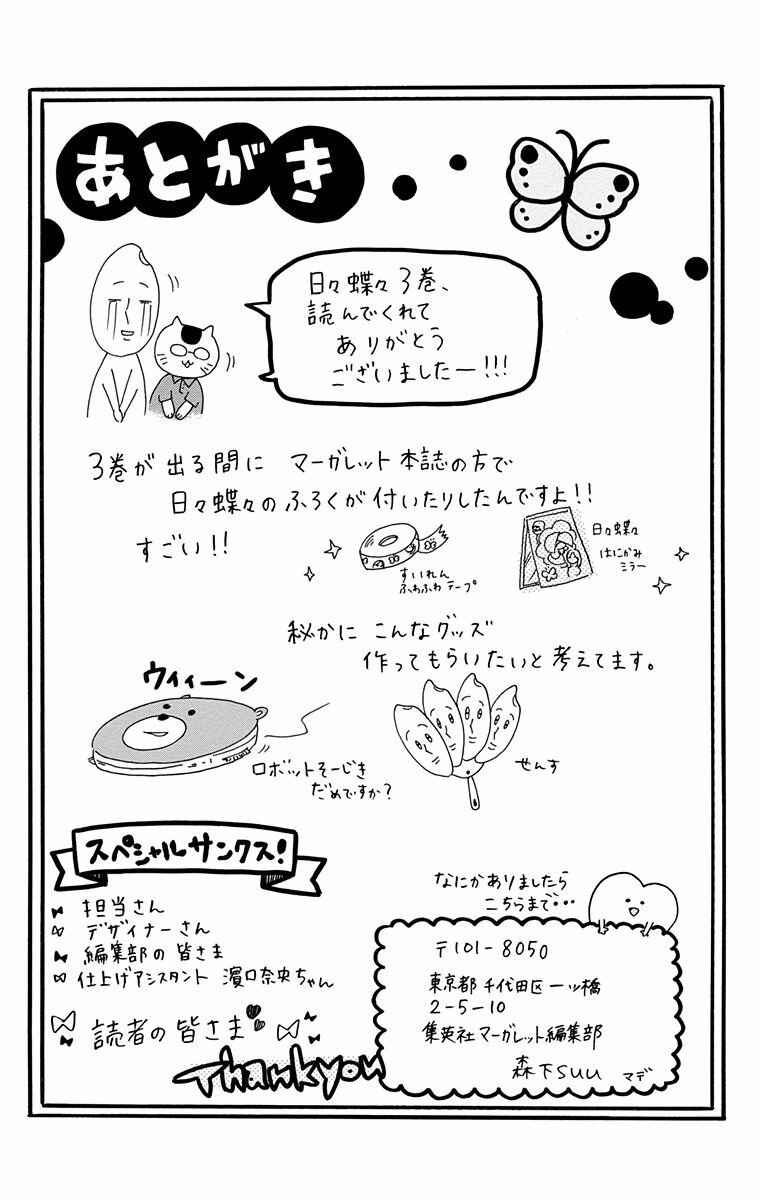 あとがき
日々蝶々3巻、
読んでくれて
ありがとう
ございましたー!!!
3巻が出る間に マーガレット本誌の方で
日々蝶々のふろくが付いたりしたんですよ!!
すごい!!
すいれん
ふわふわテープ
日々蝶々
はにかみ
ミラー
秘かに こんなグッズ
作ってもらいたいと考えてます。
ウィィーン
ロボットそーじき
だめですか?
せんす
スペシャルサンクス!
担当さん
デザイナーさん
編集部の皆さま
仕上げアシスタント 濱口奈央ちゃん
読者の皆さま
Thankyou
なにかありましたら
こちらまで・・・
〒101-8050
東京都千代田区一ッ橋
2-5-10
集英社マーガレット編集部
森下suu マデ